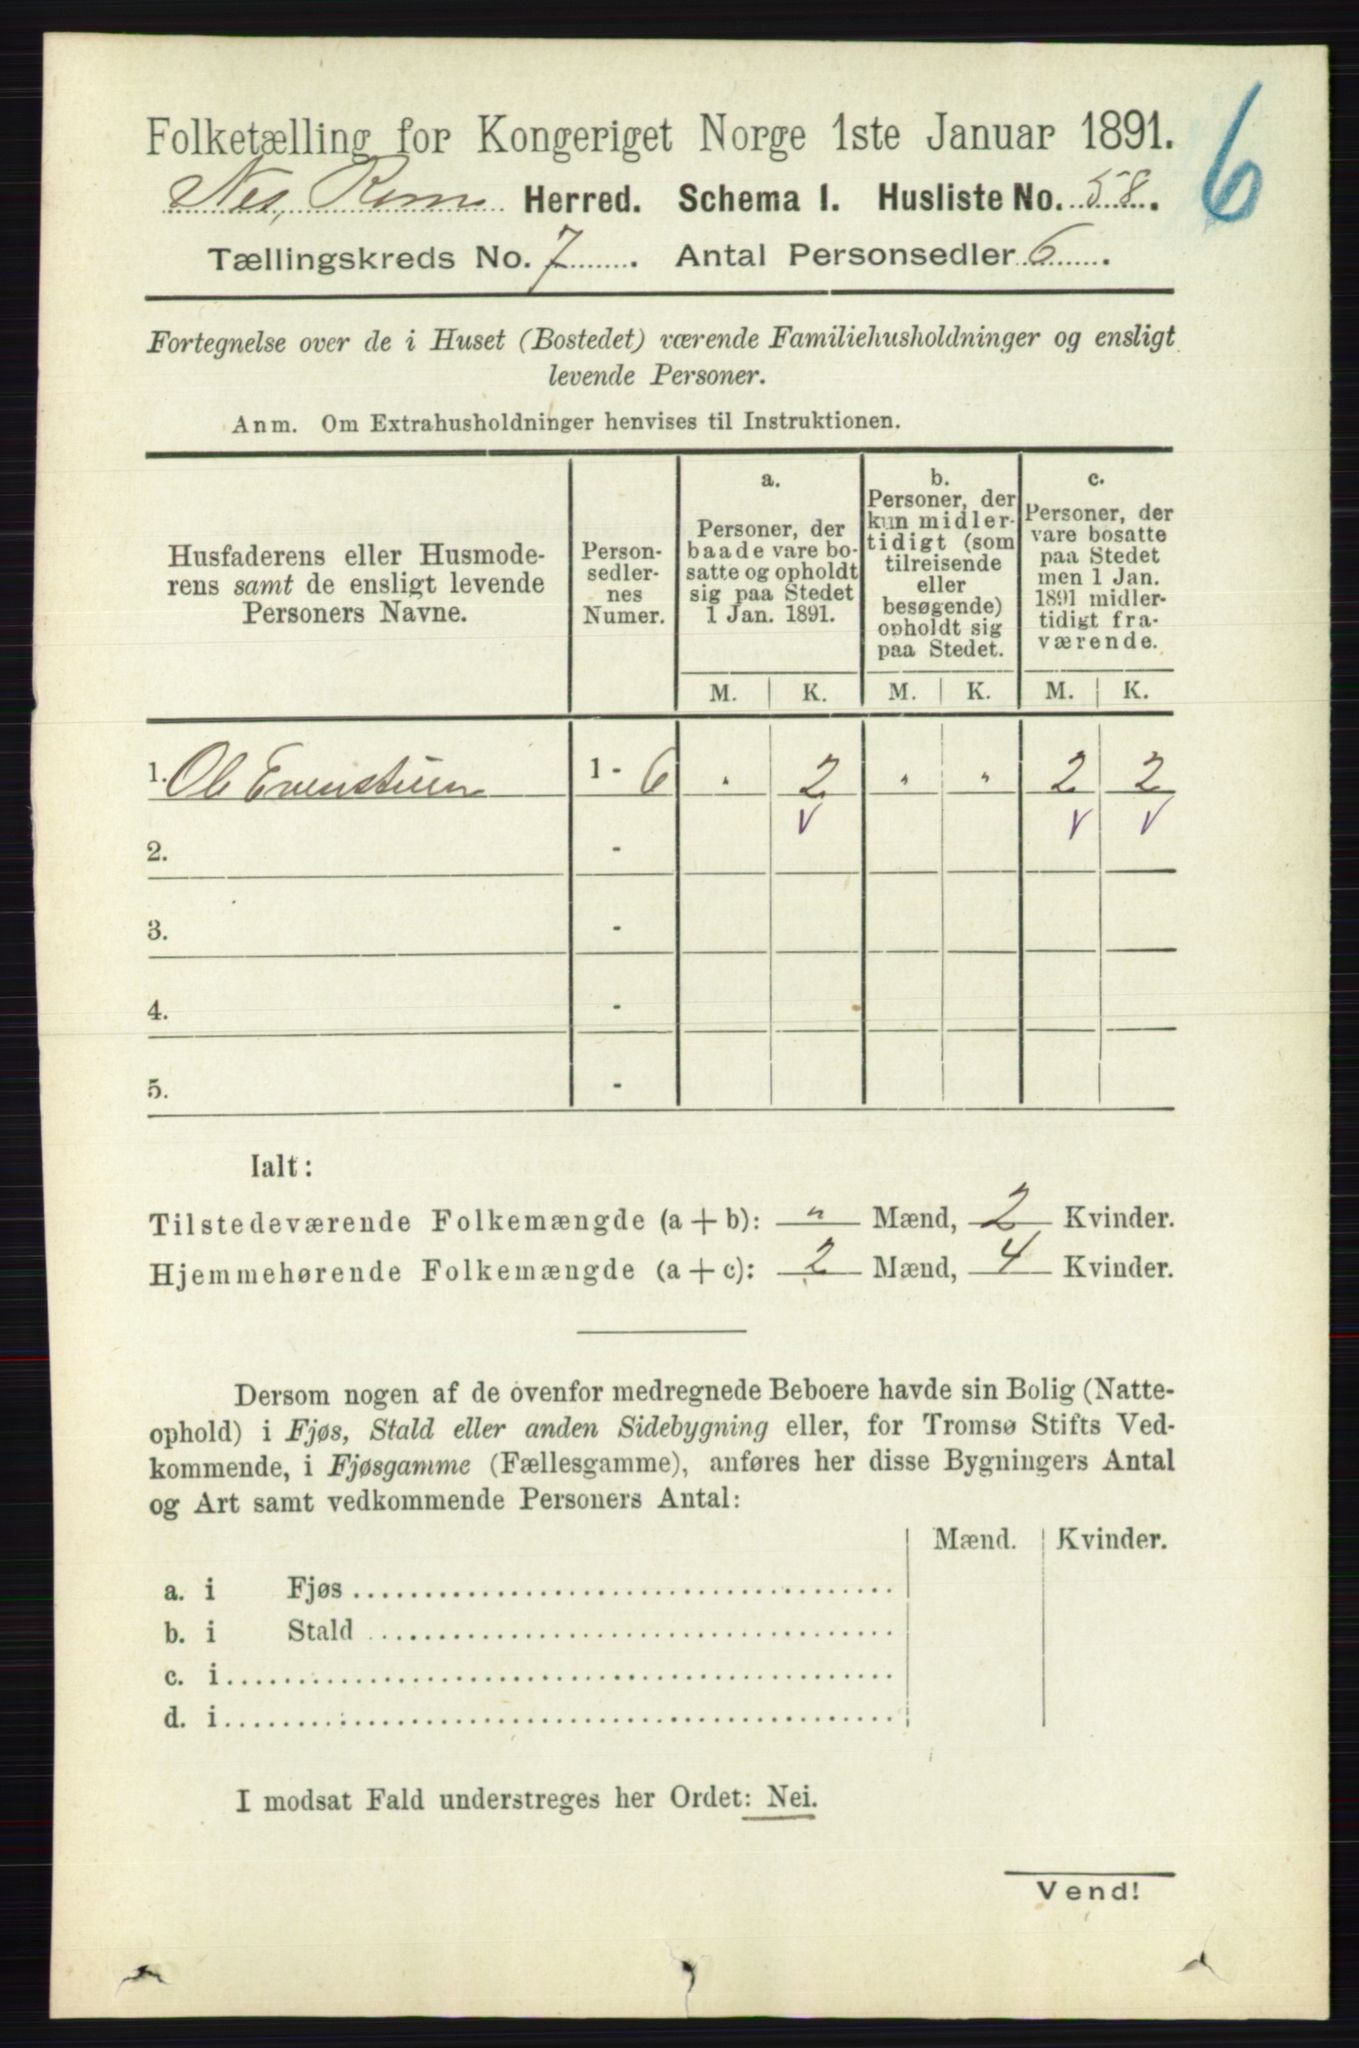 Folketælling for Kongeriget Norge 1ste Januar 1891.
6
Nes, Rom Herred. Schema I. Husliste No. 58.
Tællingskreds No. 7. Antal Personsedler 6.
Fortegnelse over de i Huset (Bostedet) værende Familiehusholdninger og ensligt
levende Personer.
Anm. Om Extrahusholdninger henvises til Instruktionen.
Husfaderens eller Husmode-
rens samt de ensligt levende
Personers Navne.
Person-
sedler-
nes
Numer.
a.
Personer, der
baade vare bo-
satte og opholdt
sig paa Stedet
1 Jan. 1891.
b.
Personer, der
kun midler-
tidigt (som
tilreisende
eller
besøgende)
opholdt sig
paa Stedet.
c.
Personer, der
vare bosatte
paa Stedet
men 1 Jan.
1891 midler-
tidigt fra-
værende.
M. K. M. K. M. K.
1. Ole 1 - 6 " 2 " " 2 2
V V V
2. -
3. -
4. -
5. -
Ialt:
Tilstedeværende Folkemængde (a + b): " Mænd, 2 Kvinder.
Hjemmehørende Folkemængde (a + c): 2 Mænd, 4 Kvinder.
Dersom nogen af de ovenfor medregnede Beboere havde sin Bolig (Natte-
ophold) i Fjøs, Stald eller anden Sidebygning eller, for Tromsø Stifts Ved-
kommende, i Fjøsgamme (Fællesgamme), anføres her disse Bygningers Antal
og Art samt vedkommende Personers Antal:
Mænd. Kvinder.
a. i Fjøs
b. i Stald
c. i
d. i
I modsat Fald understreges her Ordet: Nei.
Vend!